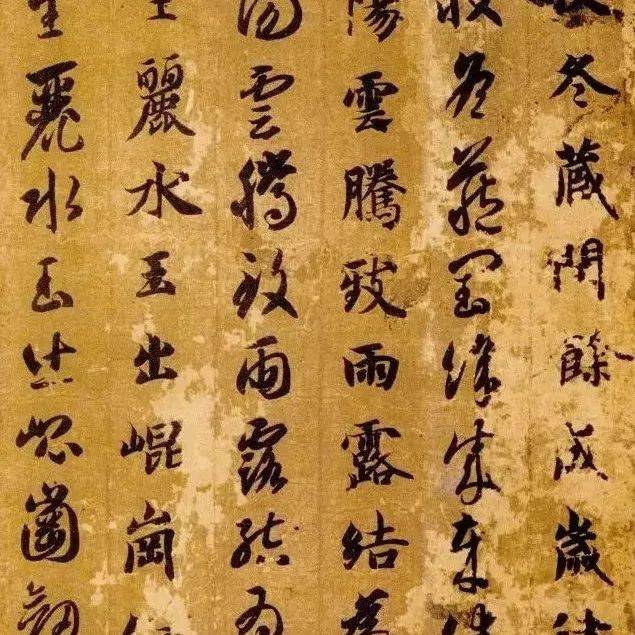 收冬藏閏餘成歲律
收冬藏閏餘成歲律
陽雲騰致雨露結為
陽雲騰致雨露結為
生麗水玉出崐崗
生麗水玉出崐崗劍